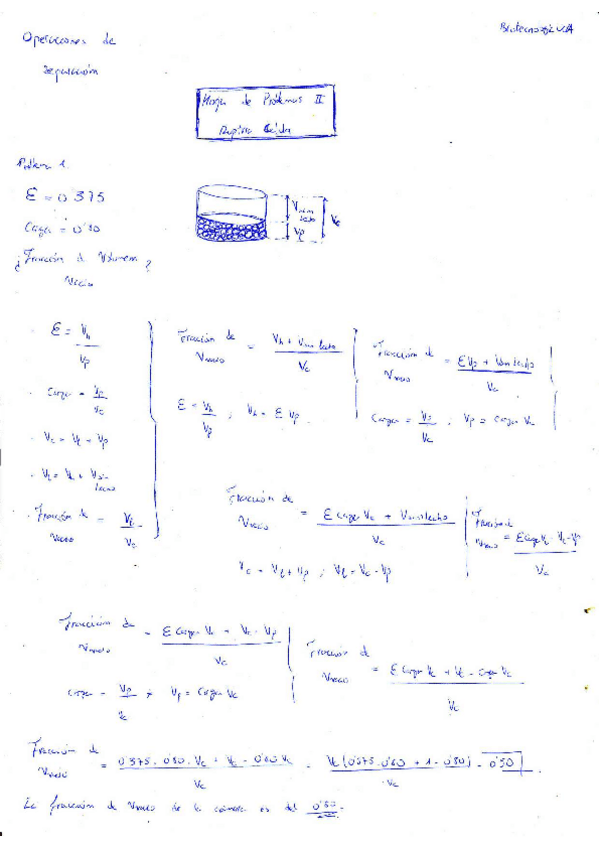 Operaciones de
Separación
Biotecnología UCA
Hoja de Problemas II
Ruptura Celular
Problema 1.
Ɛ = 0'375
Carga = 0'80
¿Fracción de Volumen
Vacío ?
V sin lecho
Vp
Vc
Ɛ = Vh / Vp
Carga = Vp / Vc
Vc = Vl + Vp
Fracción de Vvacío = Vl / Vc
Fracción de Vvacío = Vh + Vsin lecho / Vc
Ɛ = Vh / Vp ; Vh = Ɛ Vp
Fracción de Vvacío = Ɛ Vp + Vsin lecho / Vc
Carga = Vp / Vc ; Vp = Carga Vc
Fracción de Vvacío = Ɛ Carga Vc + Vsin lecho / Vc
Vc = Vl + Vp ; Vl = Vc - Vp
Fracción de Vvacío = Ɛ Carga Vc + Vc - Vp / Vc
Carga = Vp / Vc → Vp = Carga Vc
Fracción de Vvacío = Ɛ Carga Vc + Vc - Carga Vc / Vc
Fracción de Vvacío = 0'375 · 0'80 · Vc + Vc - 0'80 Vc / Vc = Vc (0'375 · 0'80 + 1 - 0'80) / Vc = 0'50
La fracción de Vvacío de la cámara es del 0'50.